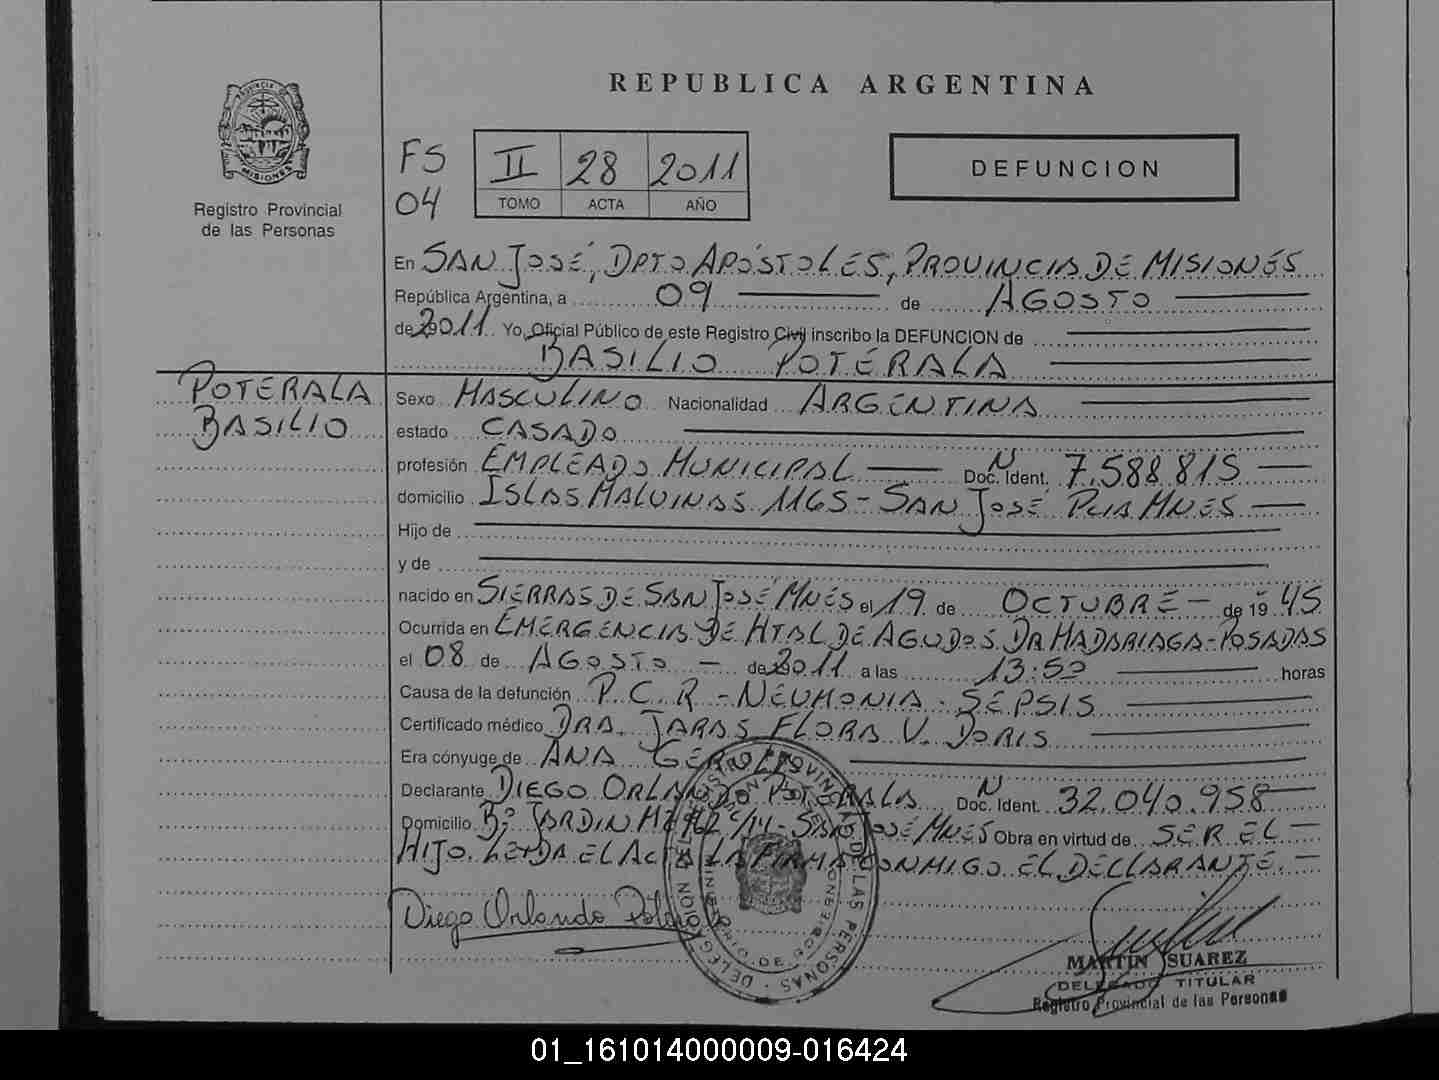 REPUBLICA ARGENTINA
PROVINCIA DE MISIONES
Registro Provincial
de las Personas
FS
04
II 28 2011
TOMO ACTA AÑO
DEFUNCION
En SAN JOSÉ, DPTO APÓSTOLES, PROVINCIA DE MISIONES
República Argentina, a 09 de AGOSTO
de 2011 Yo, Oficial Público de este Registro Civil inscribo la DEFUNCION de
BASILIO POTERALA
POTERALA
BASILIO
Sexo MASCULINO Nacionalidad ARGENTINA
estado CASADO
profesión EMPLEADO MUNICIPAL Doc. Ident. N 7.588.815
domicilio ISLAS MALVINAS 1165 - SAN JOSÉ PCIA MNES
Hijo de
y de
nacido en SIERRAS DE SAN JOSÉ MNES el 19 de OCTUBRE de 1945
Ocurrida en EMERGENCIA DE HTAL DE AGUDOS DR MADARIAGA-POSADAS
el 08 de AGOSTO de 2011 a las 13:50 horas
Causa de la defunción P.C.R - NEUMONIA - SEPSIS
Certificado médico DRA. JARAS FLORA V. DORIS
Era cónyuge de ANA
Declarante DIEGO ORLANDO POTERALA Doc. Ident. N 32.040.958
Domicilio Bº JARDIN MZ C/14 - SAN JOSÉ MNES Obra en virtud de SER EL
HIJO. LEIDA EL ACTA LA FIRMA CONMIGO EL DECLARANTE.
Diego Orlando Poterala
MARTIN SUAREZ
DELEGADO TITULAR
Registro Provincial de las Personas
01_161014000009-016424